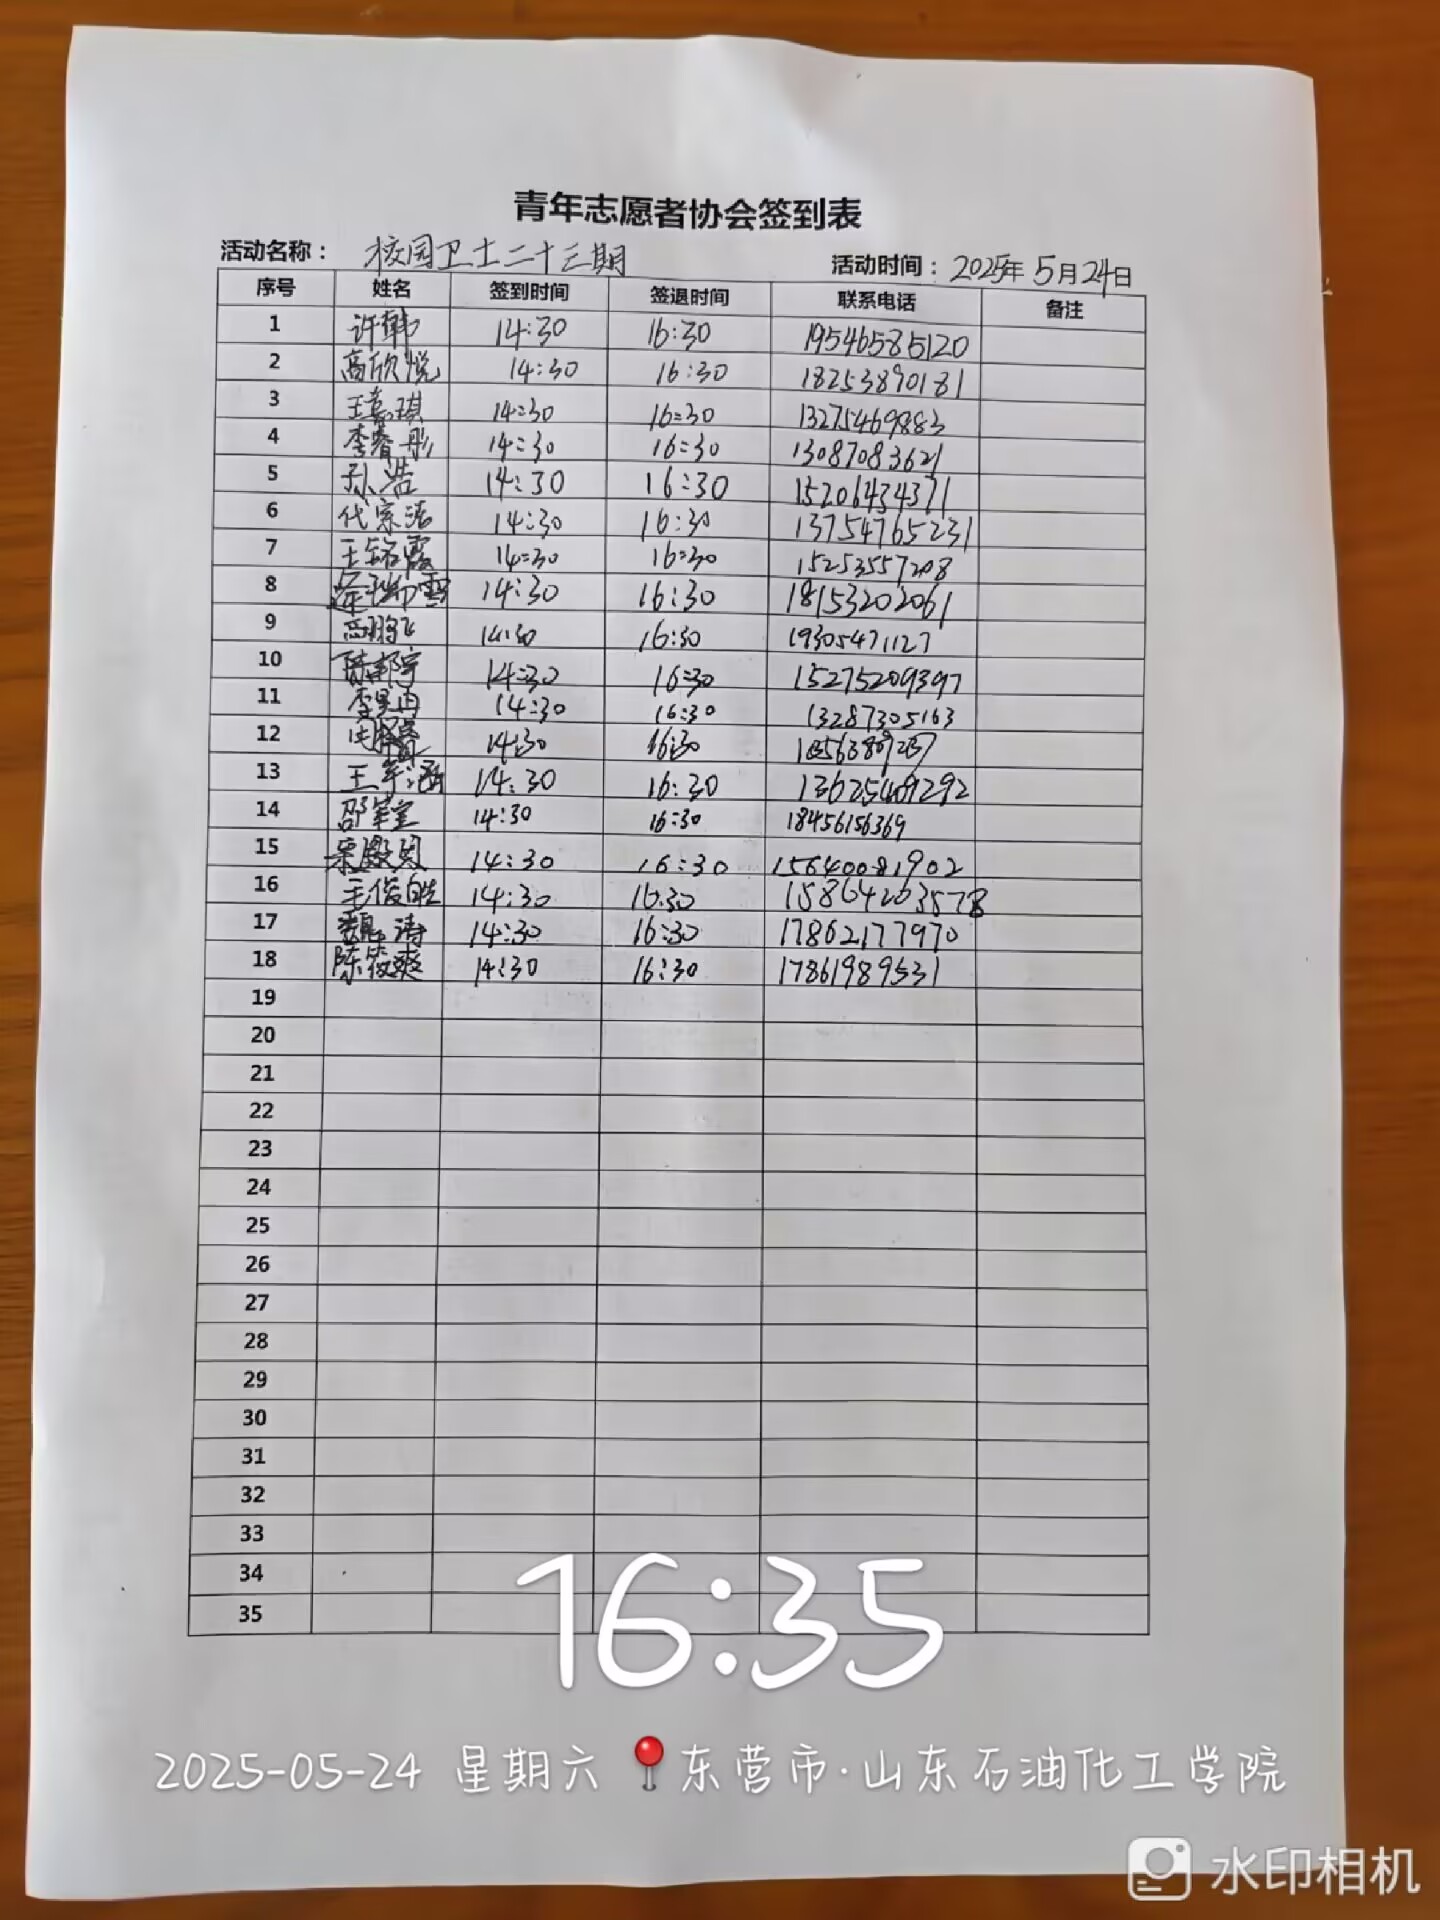 青年志愿者协会签到表
活动名称： 校园卫士二十三期 活动时间：2025年5月24日
序号 姓名 签到时间 签退时间 联系电话 备注
1 许韩 14:30 16:30 19546585120
2 高欣悦 14:30 16:30 18253890181
3 王嘉琪 14:30 16:30 13275469883
4 李睿彤 14:30 16:30 13087083621
5 孙浩 14:30 16:30 15206434371
6 代家洁 14:30 16:30 13754765231
7 王铭霞 14:30 16:30 15253557208
8 14:30 16:30 18153202061
9 高鹏飞 14:30 16:30 19305471127
10 14:30 16:30 15275209397
11 李昊冉 14:30 16:30 13287305163
12 14:30 16:30
13 王宇涵 14:30 16:30 13625469292
14 14:30 16:30 18456156369
15 14:30 16:30 15640081902
16 毛俊皓 14:30 16:30 15864263578
17 魏涛 14:30 16:30 17862177970
18 陈筱爽 14:30 16:30 17861989531
19
20
21
22
23
24
25
26
27
28
29
30
31
32
33
34
35
16:35
2025-05-24 星期六 东营市·山东石油化工学院
水印相机